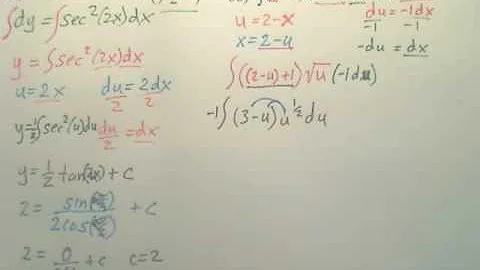 ∫dy = ∫sec²(2x)dx
y = ∫sec²(2x)dx
u = 2x    du/2 = 2dx/2
y = ½∫sec²(u)du    du/2 = dx
y = ½tan(2x) + c
2 = + c
2 = 0 + c    c = 2
u = 2-x    du/-1 = -1dx/-1
x = 2-u    -du = dx
∫((2-u)+1)√u(-1du)
-1∫(3-u)u^½ du